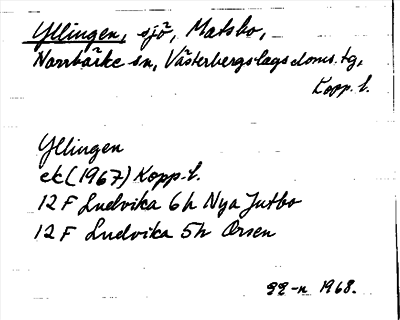 Yllingen, sjö, Matsbo,
Norrbärke sn, Västerbergslags doms. tg,
Kopp. l.
Yllingen
ek (1967) Kopp. l.
12 F Ludvika 6h Nya Jutbo
12 F Ludvika 5h Orsen
1968.